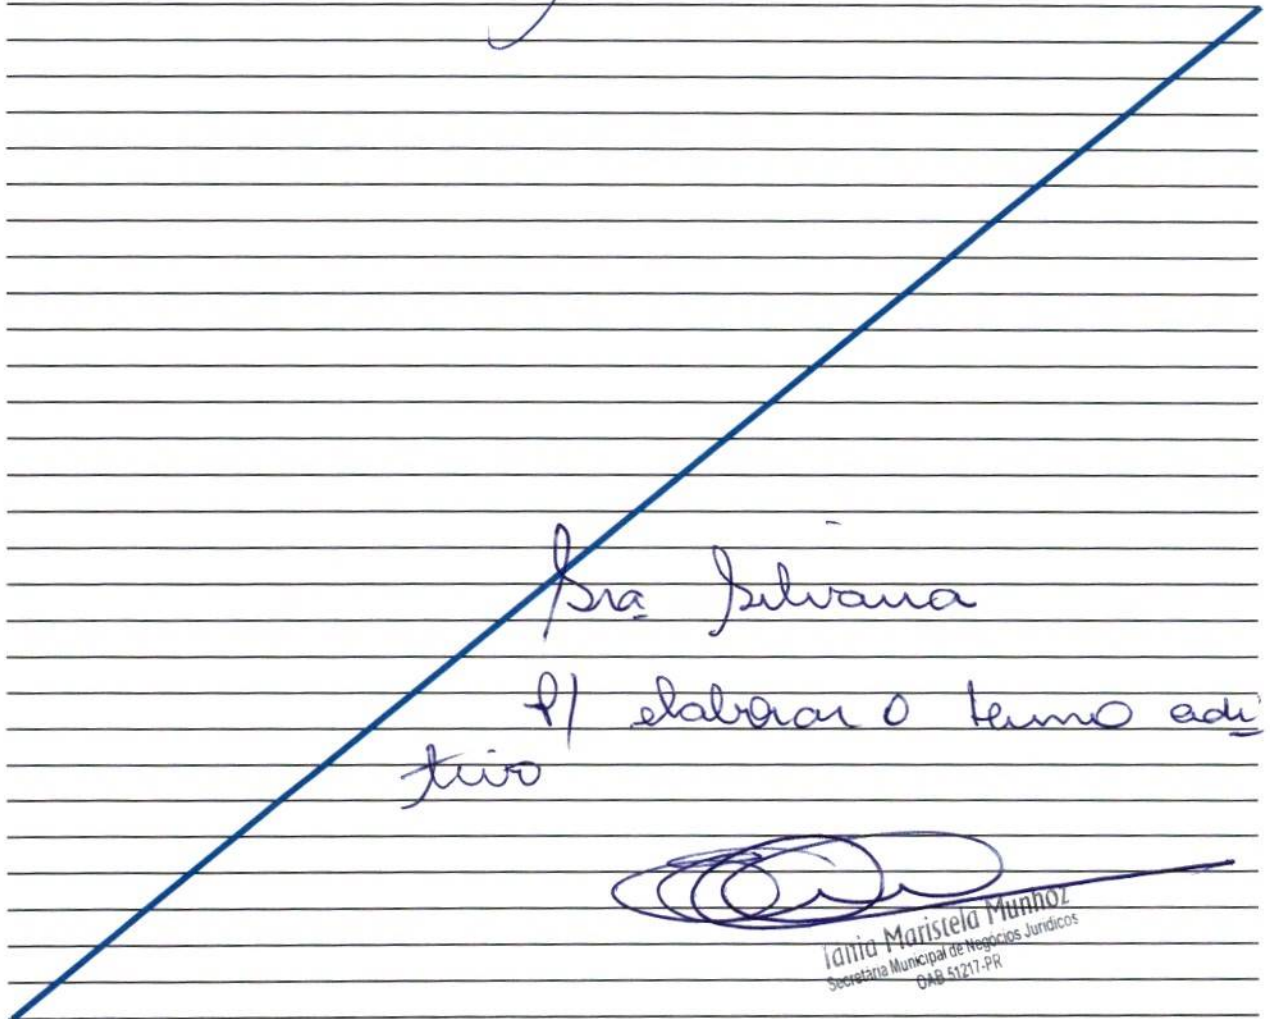 Sra Silvana
P/ elaborar o termo adi
tivo
Tania Maristela Munhoz
Secretária Municipal de Negócios Jurídicos
OAB 51217-PR